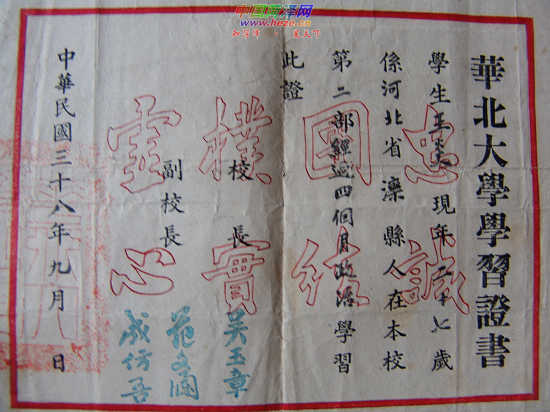 中国菏泽网
www.heze.cn
華北大學學習證書
學生王炎現年二十七歲
係河北省灤縣人在本校
第二部經過四個月政治學習
此證
忠誠
團結
樸實
虛心
校長 吳玉章
副校長 范文瀾
成仿吾
中華民國三十八年九月 日